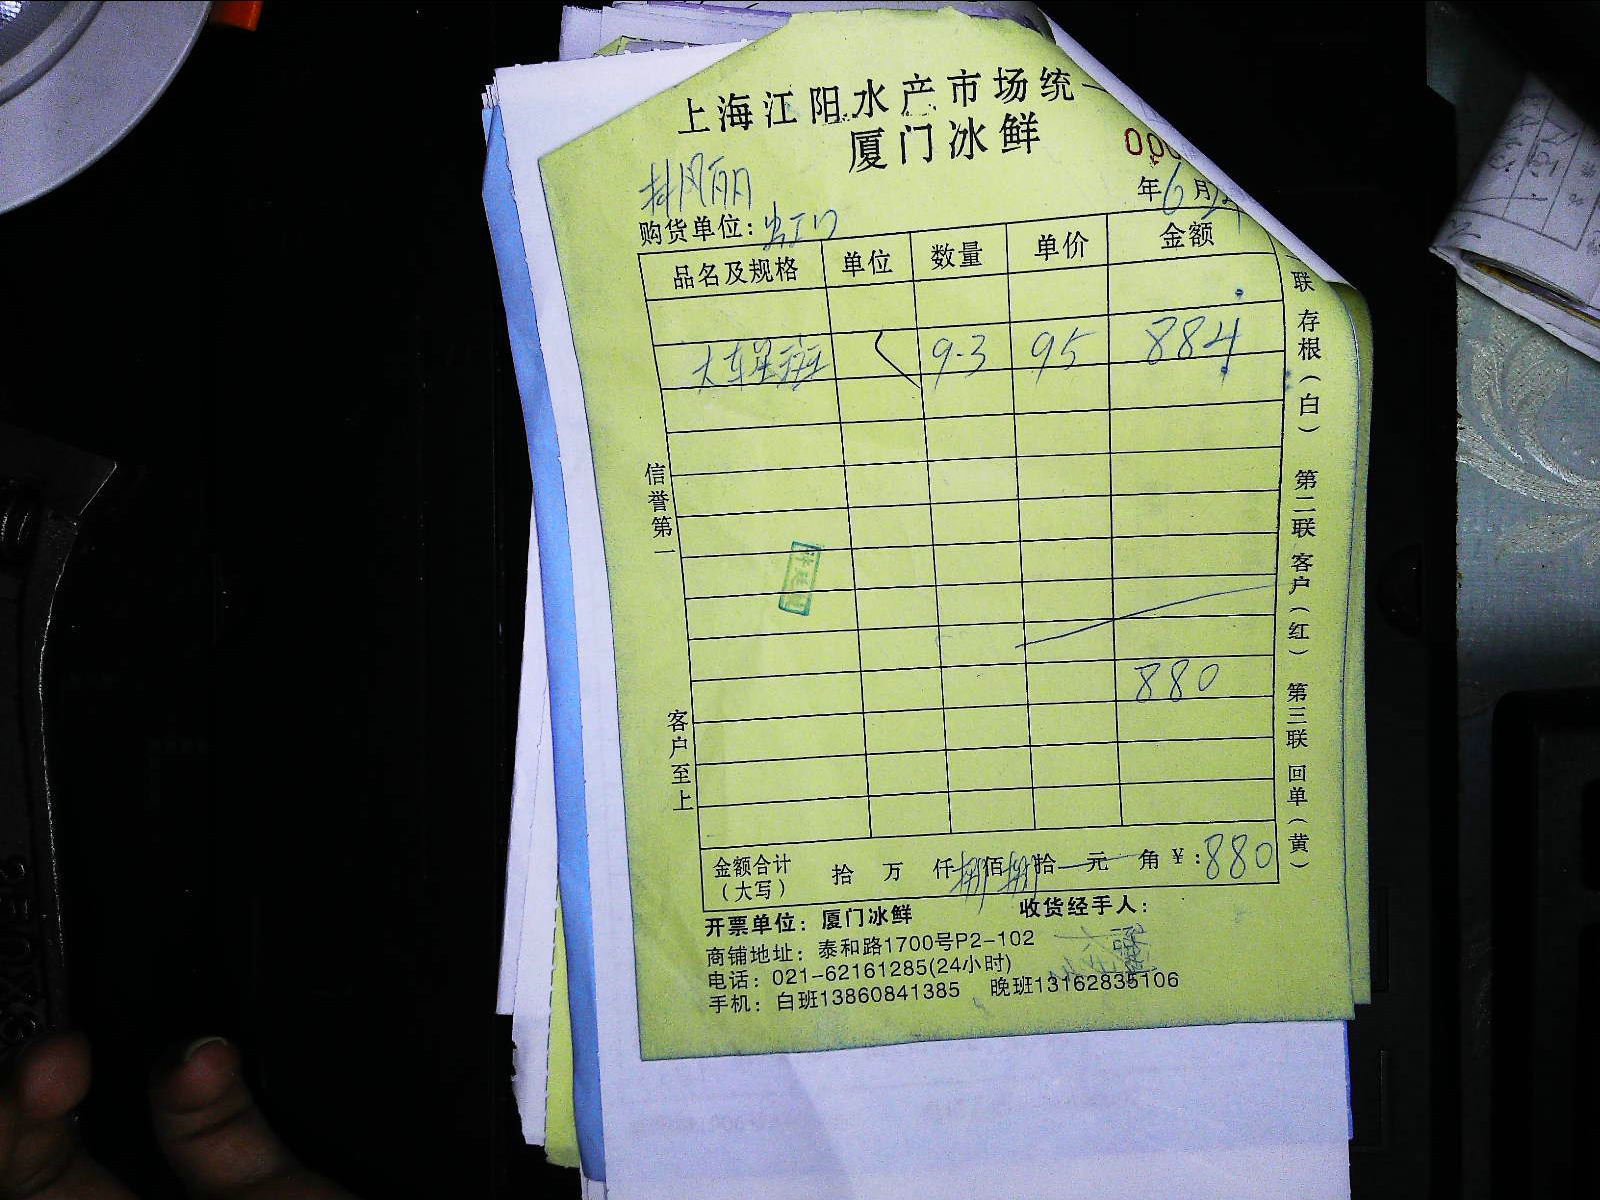 上海江阳水产市场统一
厦门冰鲜
000
年6月
购货单位:
品名及规格 单位 数量 单价 金额
大东星斑 9.3 95 884
880
金额合计(大写) 拾 万 仟捌佰捌拾 元 角 ¥:880
开票单位: 厦门冰鲜 收货经手人:
商铺地址: 泰和路1700号P2-102
电话: 021-62161285(24小时)
手机: 白班13860841385 晚班13162835106
信誉第一
客户至上
联 存根(白) 第二联 客户(红) 第三联 回单(黄)